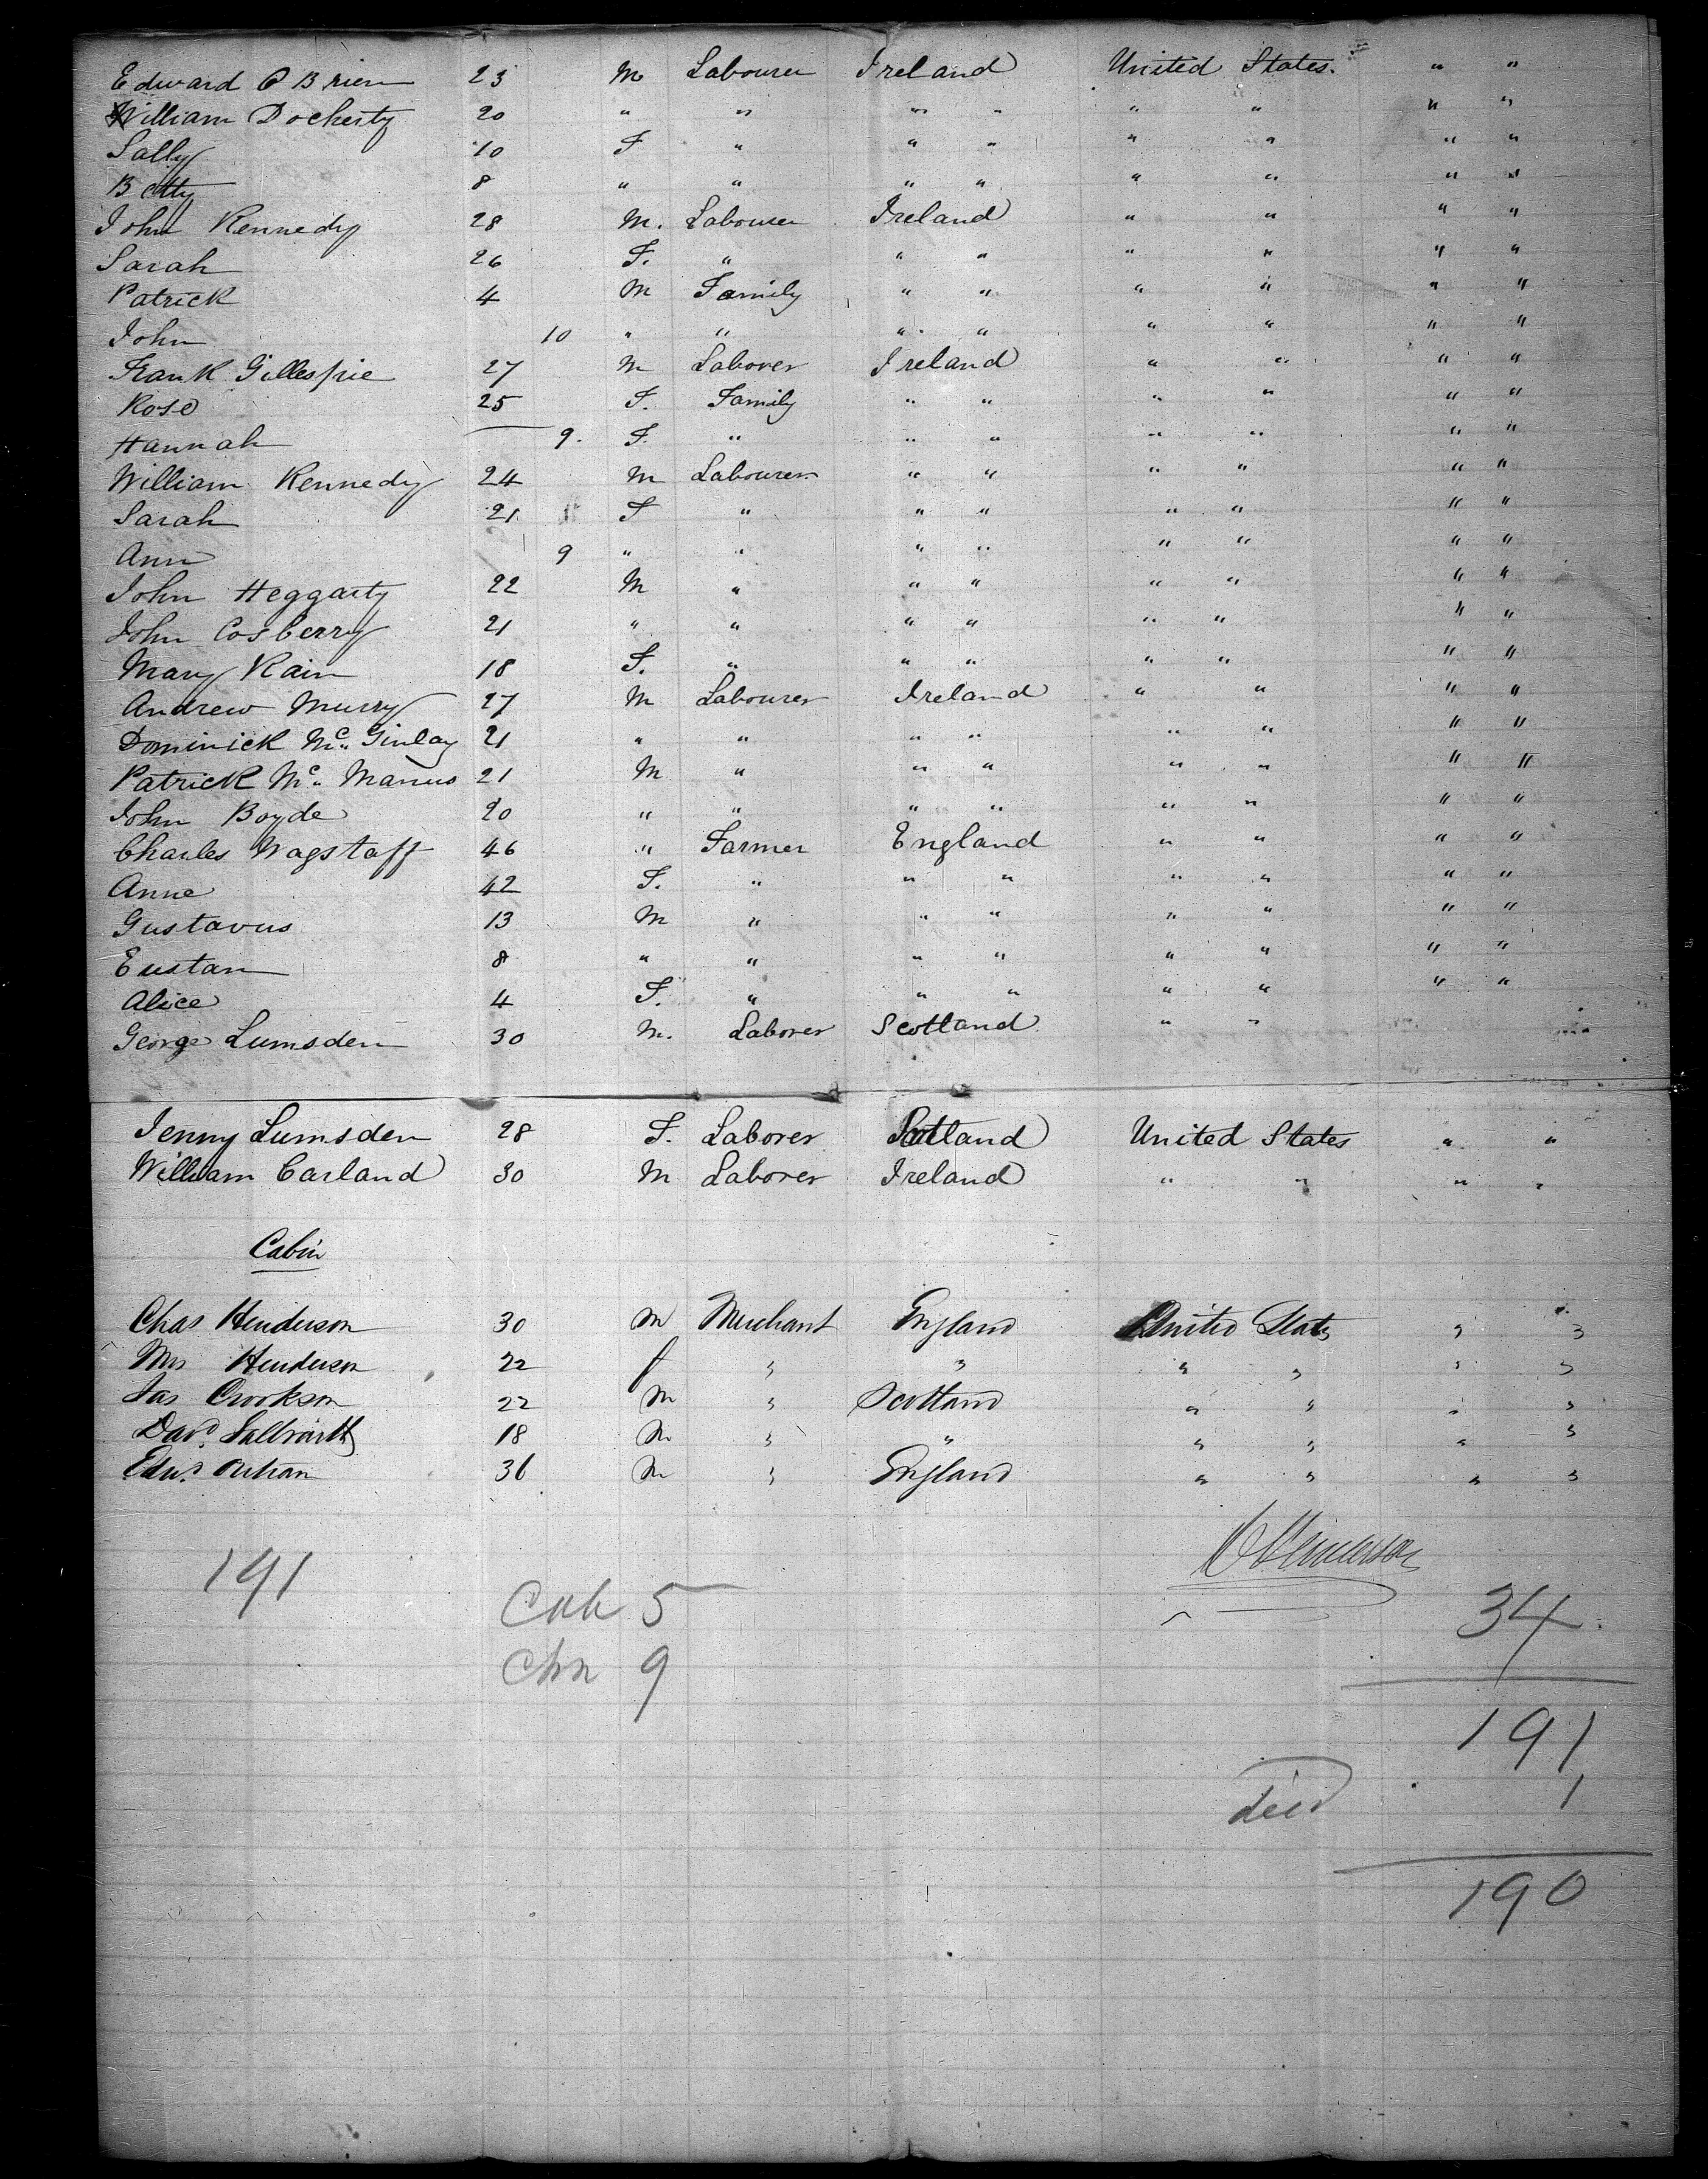 Edward O Brien 23 M Labourer Ireland United States. " "
William Docherty 20 " " " " " " " "
Sally 10 F " " " " " " "
Betty 8 " " " " " " " "
John Kennedy 28 M. Labourer Ireland " " " "
Sarah 26 F. " " " " " " "
Patrick 4 M Family " " " " " "
John 10 " " " " " " " "
Frank Gillespie 27 M Laborer Ireland " " " "
Rose 25 F. Family " " " " " "
Hannah — 9. F. " " " " " " "
William Kennedy 24 M Labourer " " " " " "
Sarah 21 F " " " " " " "
Ann 9 " " " " " " " "
John Heggarty 22 M " " " " " " "
John Cosberry 21 " " " " " " " "
Mary Kain 18 F. " " " " " " "
Andrew Murry 27 M Labourer Ireland " " " "
Dominick Mc Ginlay 21 " " " " " " " "
Patrick Mc Manus 21 M " " " " " " "
John Boyde 20 " " " " " " " "
Charles Wagstaff 46 " Farmer England " " " "
Anne 42 F. " " " " " " "
Gustavus 13 M " " " " " " "
Eustan 8 " " " " " " " "
Alice 4 F. " " " " " " "
George Lumsden 30 M. Laborer Scotland " "
Jenny Lumsden 28 F. Laborer Scotland United States " "
William Carland 30 M Laborer Ireland " " " "
Cabin
Chas Henderson 30 M Merchant England United States " "
Mrs Henderson 22 f " " " " " "
Jas Crookson 22 M " Scotland " " " "
Davd. 18 M " " " " " "
Edwd. 36 M " England " " " "
Henderson
191
Cab 5
Chn 9
34
191
died 1
190